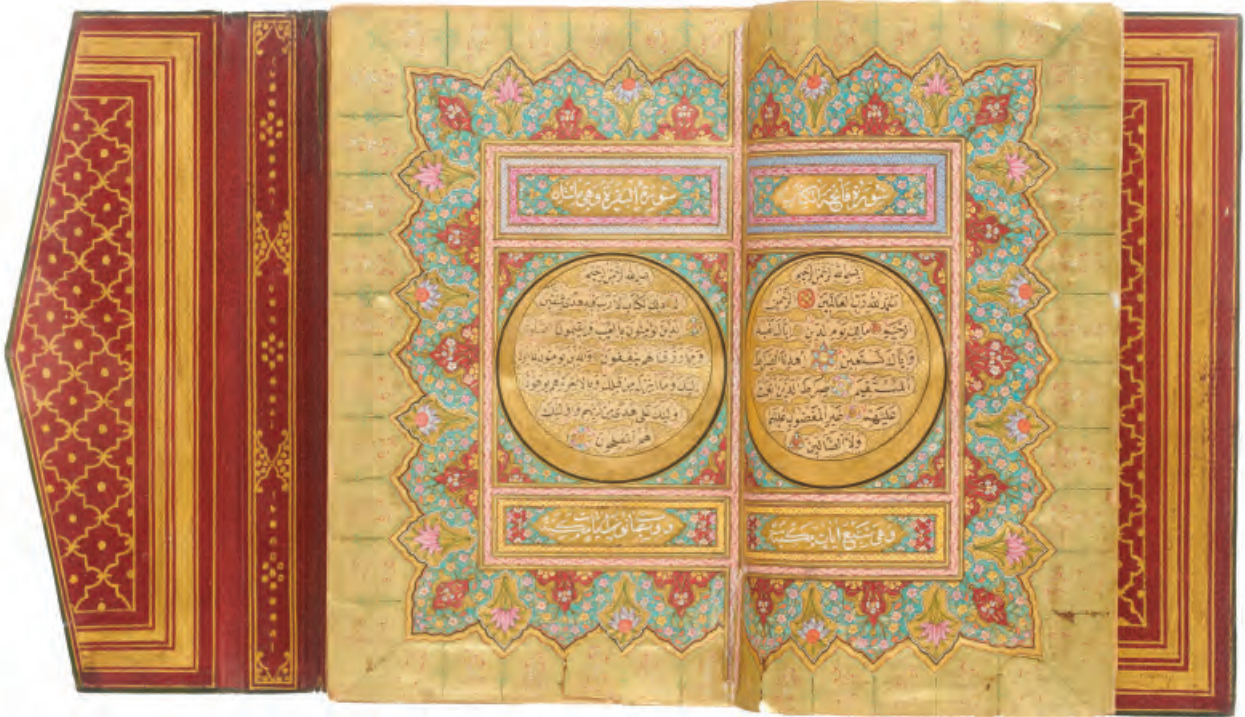 سورة فاتحة الكتاب
بسم الله الرحمن الرحيم
الحمد لله رب العالمين الرحمن
الرحيم مالك يوم الدين اياك نعبد
واياك نستعين اهدنا الصراط
المستقيم صراط الذين انعمت
عليهم غير المغضوب عليهم
ولا الضالين
وهي سبع ايات مكية
سورة البقرة وهي مائتان
بسم الله الرحمن الرحيم
الم ذلك الكتاب لا ريب فيه هدى للمتقين
الذين يؤمنون بالغيب ويقيمون الصلوة
ومما رزقناهم ينفقون والذين يؤمنون بما انزل
اليك وما انزل من قبلك وبالاخرة هم يوقنون
اولئك على هدى من ربهم واولئك
هم المفلحون
وثمانون ايات